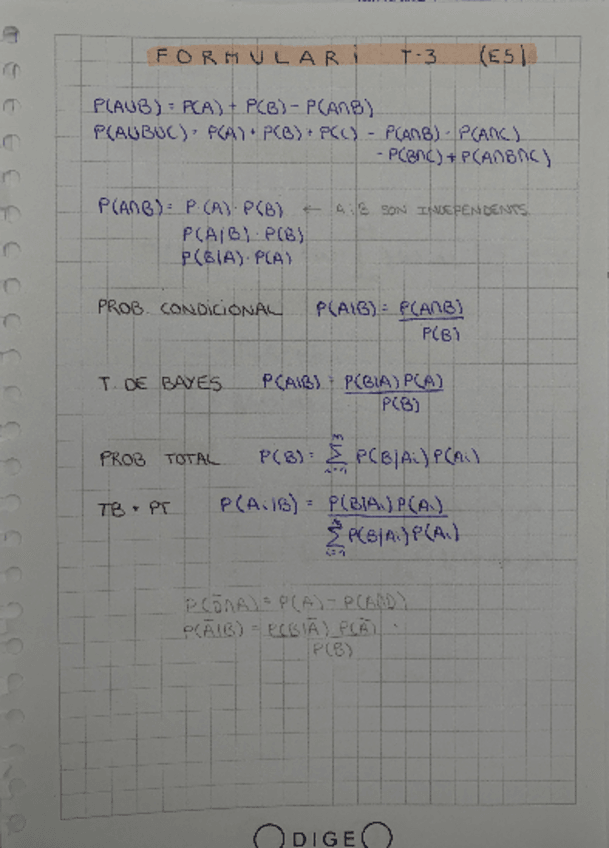 FORMULARi T-3 (ES)
P(A∪B) = P(A) + P(B) - P(A∩B)
P(A∪B∪C) = P(A) + P(B) + P(C) - P(A∩B) - P(A∩C)
- P(B∩C) + P(A∩B∩C)
P(A∩B) = P(A)·P(B) ← A i B SON INDEPENDENTS
P(A|B)·P(B)
P(B|A)·P(A)
PROB. CONDICIONAL P(A|B) = P(A∩B)
P(B)
T. DE BAYES P(A|B) = P(B|A) P(A)
P(B)
PROB TOTAL P(B) = Σ P(B|Ai) P(Ai)
TB + PT P(Ai|B) = P(B|Ai) P(Ai)
Σ P(B|Ai) P(Ai)
= P(A) -
P(Ā|B) = P(B|Ā) P(Ā)
P(B)
DIGEO